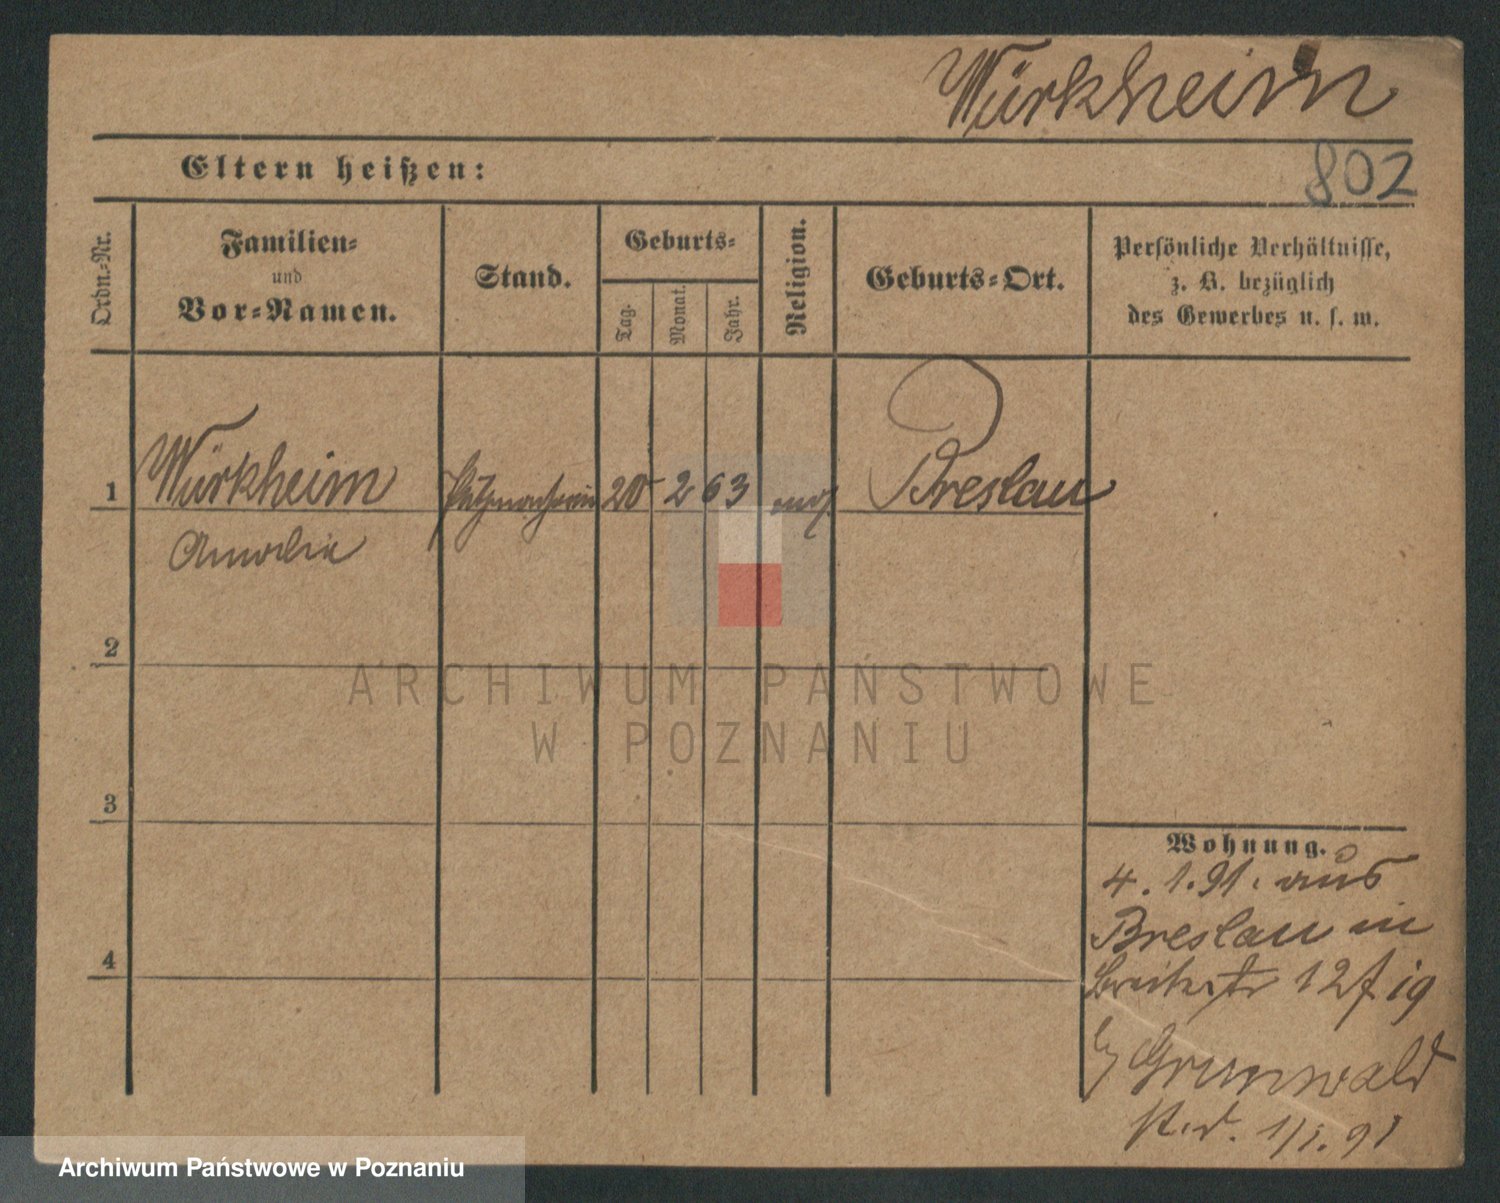 Würkheim
802
Eltern heißen:
Ordn.-Nr.
Familien-
und
Vor-Namen.
Stand.
Geburts-
Tag.
Monat.
Jahr.
Religion.
Geburts-Ort.
Persönliche Verhältnisse,
z. B. bezüglich
des Gewerbes u. s. w.
1 Würkheim Putzmacherin 20 2 63 Breslau
Amalie
2
3
4
ARCHIWUM PAŃSTWOWE
W POZNANIU
Wohnung.
4. 1. 91. aus
Breslau in
Breitestr 12
Grunwald
91
Archiwum Państwowe w Poznaniu